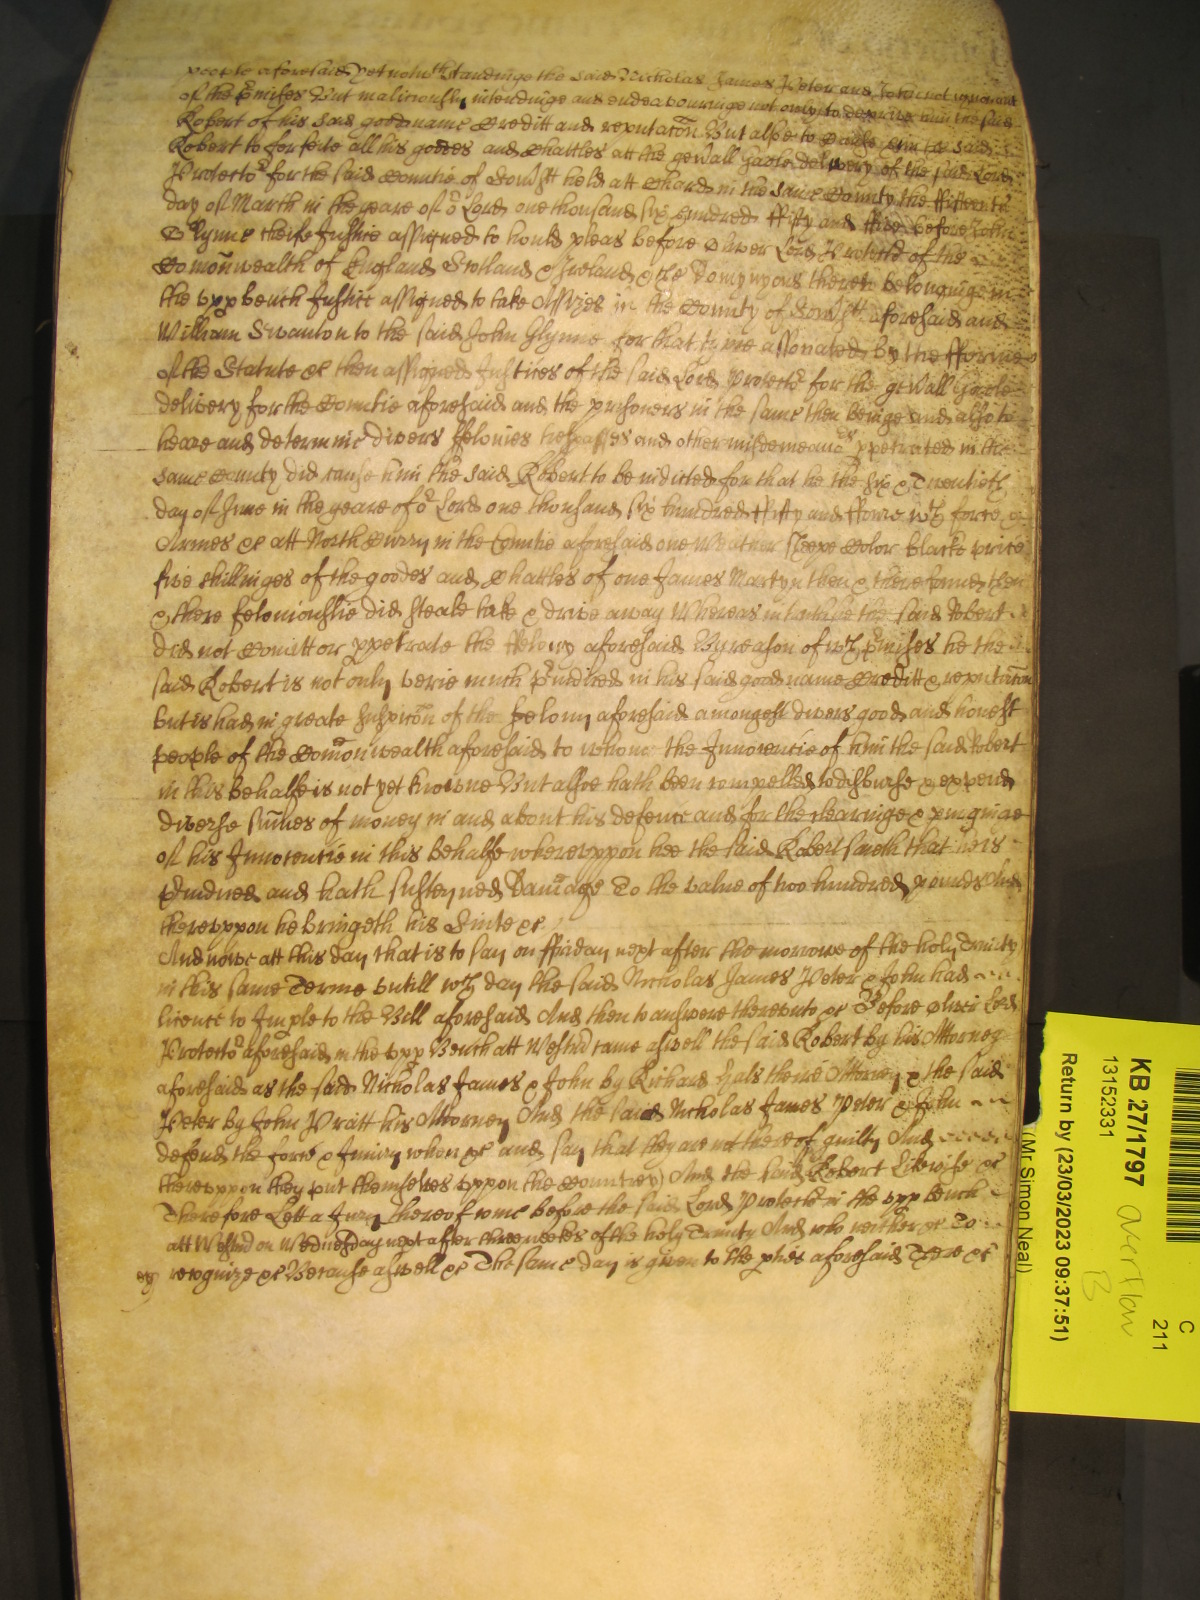 people aforesaid yet notwthstandinge the said Nicholas James Peter and John not ignorant
of the pmises But maliciously intendinge and endeavouringe not only to deprive him the said
Robert of his said good name Creditt and reputacōn But alsoe to cause him the said
Robert to forfeite all his goodes and Chattles att the gen'all Gaole delivery of the said Lord
Protector for the said Countie of Som'sett held att Chard in the same County the fifteenth
day of March in the yeare of or Lord one thousand six hundred ffifty and ffive before John
Glynne cheife Justice assigned to hould pleas before Oliver Lord Protector of the
Comōnwealth of England Scotland & Ireland & the Domynyons thereto belonginge in
the vpp bench Justice assigned to take Assizes in the County of Som'sett aforesaid and
William Swanton to the said John Glynne for that tyme assotiated by the fforme
of the Statute &c then assigned Justices of the said Lord Protector for the gen'all Gaole
delivery for the Countie aforesaid and the prisoners in the same then beinge and alsoe to
heare and determine divers ffelonies trespasses and other misdemeanors ppetrated in the
same County did cause him the said Robert to be indicted for that he the six & Twentieth
day of June in the yeare of or Lord one thousand six hundred ffifty and ffowre wth force &
Armes &c att North Curry in the Countie aforesaid one Weather Sheepe Color blacke price
five shillinges of the goodes and Chattles of one James Martyn then & there found then
& there feloniouslie did steale take & drive away Whereas in the said Robert
did not Comitt or ppetrate the ffelony aforesaid By reason of wch pmises he the
said Robert is not only verie much piudiced in his said good name Creditt & reputacōn
but is had in greate suspicōn of the felony aforesaid amongest divers good and honest
people of the Comōnwealth aforesaid to whome the Innocencie of him the said Robert
in this behalfe is not yet knowne But alsoe hath been compelled to disburse & expend
diverse sum̄es of money in and about his defence and for the clearinge &
of his Innocencie in this behalfe wherevppon hee the said Robert saieth that he is
piudiced and hath susteyned Dam̄age To the value of two hundred pounds And
therevppon he bringeth his Suite &c
And nowe att this day that is to say on ffriday next after the morrowe of the holy Trinity
in this same Terme vntill wch day the said Nicholas James Peter & John had
licence to Imple to the Bill aforesaid And then to answere therevnto &c Before Oliver Lord
Protector aforesaid in the vpp Bench att Westmr came aswell the said Robert by his Attorney
aforesaid as the said Nicholas James & John by Richard Hals theire Attorney & the said
Peter by John Pratt his Attorney And the said Nicholas James Peter & John
defend the force & Iniury when &c and say that they are not thereof guilty And
therevppon they put themselves vppon the Countrey And the said Robert Likewise &c
Therefore Lett a Jury thereof come before the said Lord Protector in the vpp bench
att Westmr on Wednesday next after three weekes of the holy Trinity And who neither &c To
recognize &c Because aswell &c The same day is given to the pties aforesaid There &c
KB 27/1797
13152331
Return by (23/03/2023 09:37:51)
(Mr Simon Neal)
C
211
Overflow
B